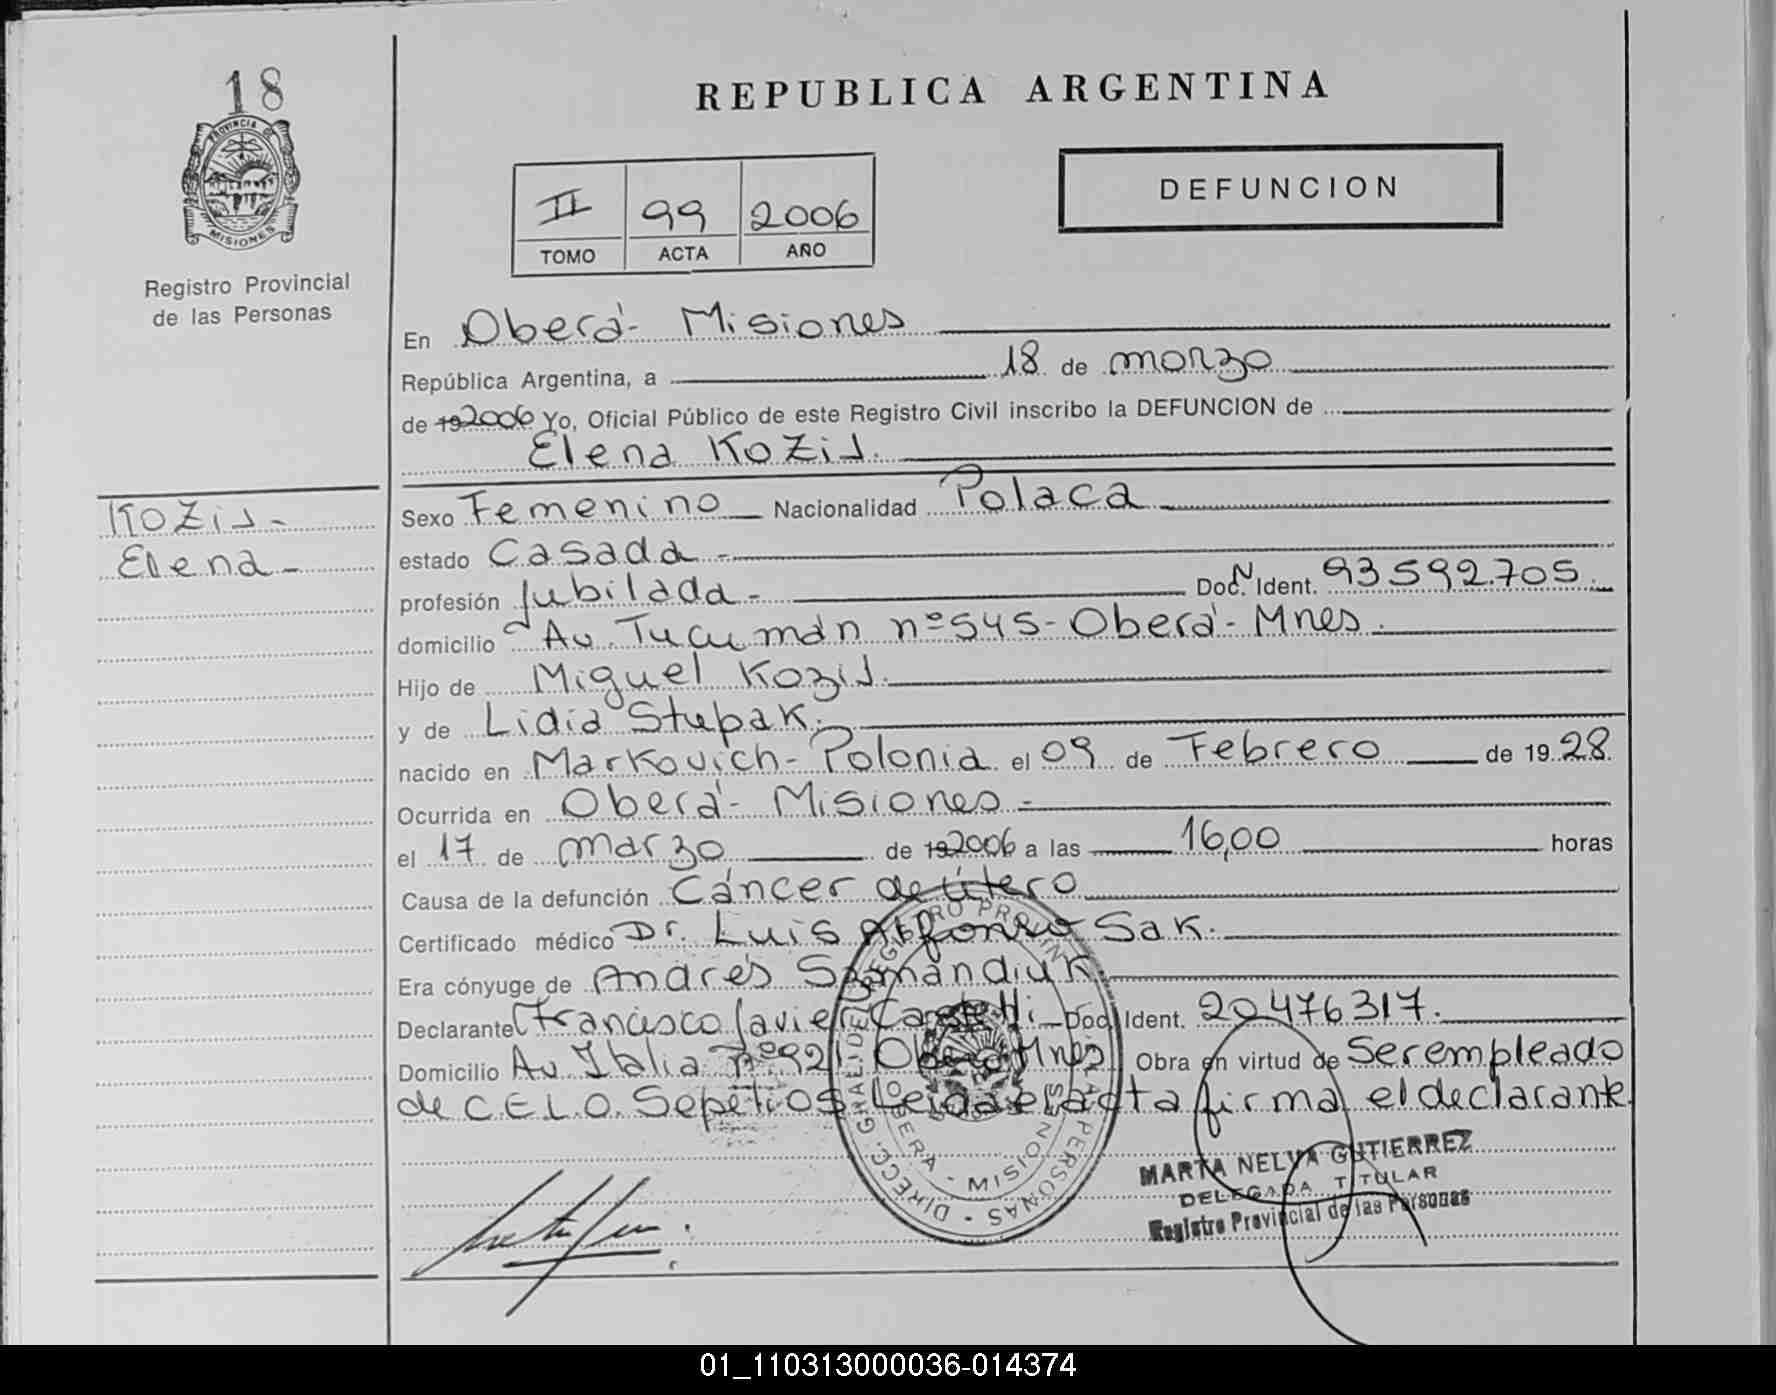 18
PROVINCIA DE
MISIONES
Registro Provincial
de las Personas
REPUBLICA ARGENTINA
DEFUNCION
II 99 2006
TOMO ACTA AÑO
En Oberá- Misiones
República Argentina, a 18 de marzo
de 192006 Yo, Oficial Público de este Registro Civil inscribo la DEFUNCION de
Elena Kozis.
Kozis-
Elena-
Sexo Femenino Nacionalidad Polaca
estado Casada -
profesión Jubilada - Doc. N Ident. 93592.705.
domicilio Av. Tucumán nº 545- Oberá- Mnes.
Hijo de Miguel Kozis.
y de Lidia Stupak.
nacido en Markovich- Polonia el 09 de Febrero de 1928.
Ocurrida en Oberá- Misiones -
el 17 de marzo de 192006 a las 16,00 horas
Causa de la defunción Cáncer de útero
Certificado médico Dr. Luis Alfonso Sak.
Era cónyuge de Andrés Szamandiuk.
Declarante Francisco Javier Doc. Ident. 20476317.
Domicilio Av. Italia nº 921 Oberá Mnes Obra en virtud de Ser empleado
de C.E.L.O. Sepelios Leida el acta firma el declarante
DIRECC. GRAL. DEL REGISTRO PROVINCIAL DE LAS PERSONAS -
OBERA - MISIONES
MARTA NELVA GUTIERREZ
DELEGADA TITULAR
Registro Provincial de las Personas
01_110313000036-014374